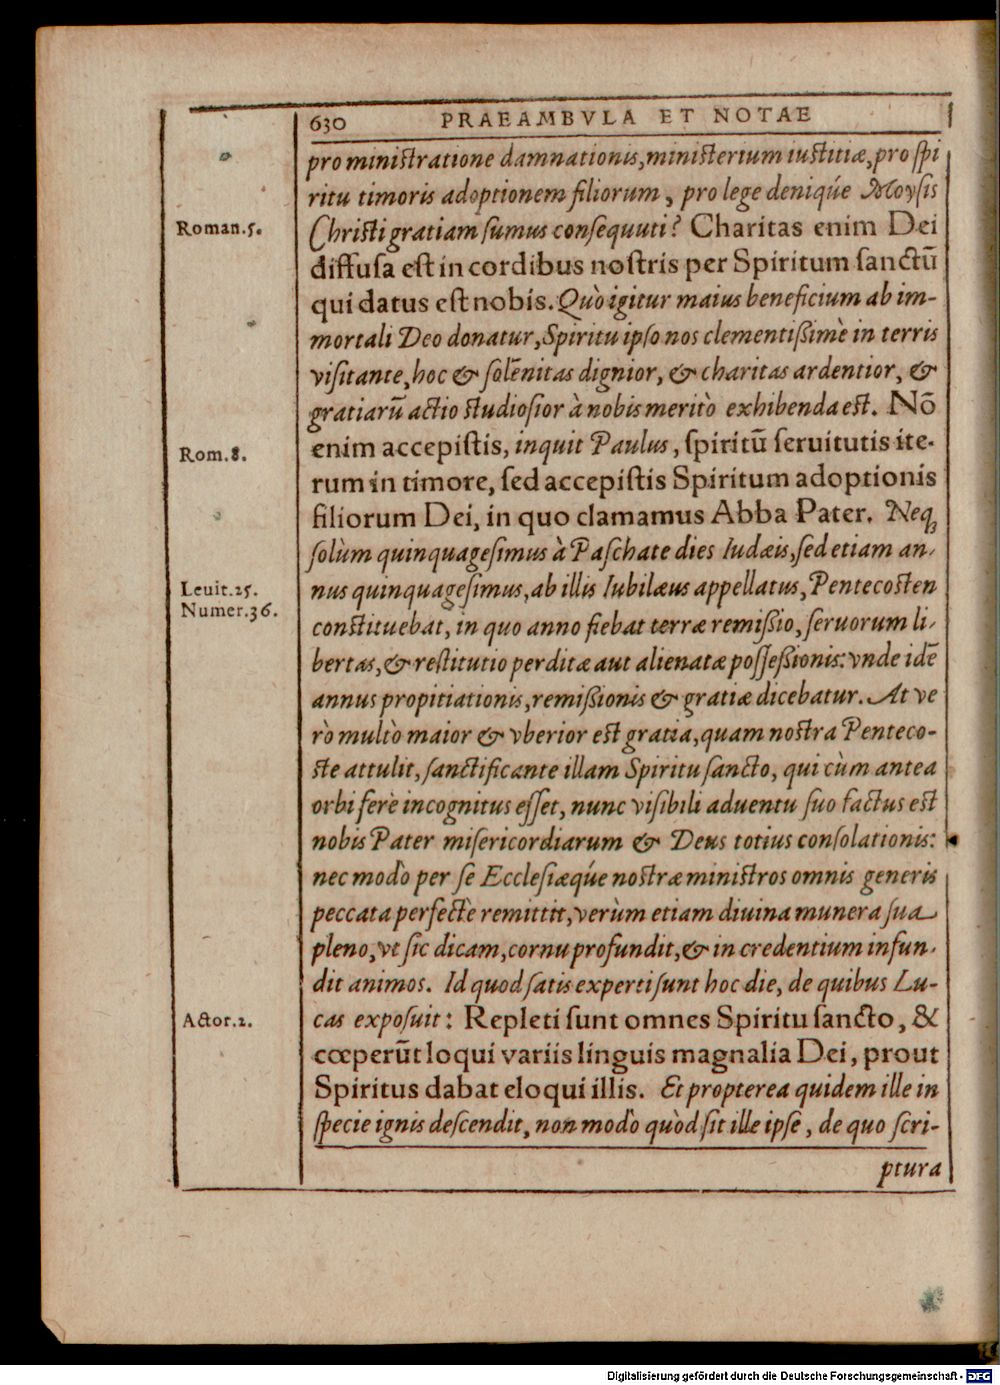 630 PRAEAMBVLA ET NOTAE
pro ministratione damnationis, ministerium iustitiæ, pro spi
ritu timoris adoptionem filiorum, pro lege deniq́ue Moysis
Roman.5.
Christi gratiam sumus consequuti? Charitas enim Dei
diffusa est in cordibus nostris per Spiritum sanctũ
qui datus est nobis. Quò igitur maius beneficium ab im-
mortali Deo donatur, Spiritu ipso nos clementißimè in terris
visitante, hoc & solẽnitas dignior, & charitas ardentior, &
gratiarũ actio studiosior à nobis meritò exhibenda est. Nõ
Rom.8.
enim accepistis, inquit Paulus, spiritũ seruitutis ite-
rum in timore, sed accepistis Spiritum adoptionis
filiorum Dei, in quo clamamus Abba Pater. Neqꝫ
solùm quinquagesimus à Paschate dies Iudæis, sed etiam an-
Leuit.25.
nus quinquagesimus, ab illis Iubilæus appellatus, Pentecosten
Numer.36.
constituebat, in quo anno fiebat terræ remißio, seruorum li-
bertas, & restitutio perditæ aut alienatæ possessionis: vnde idẽ
annus propitiationis, remißionis & gratiæ dicebatur. At ve
rò multò maior & vberior est gratia, quam nostra Penteco-
ste attulit, sanctificante illam Spiritu sancto, qui cùm antea
orbi ferè incognitus esset, nunc visibili aduentu suo factus est
nobis Pater misericordiarum & Deus totius consolationis:
nec modò per se Ecclesiæq́ue nostræ ministros omnis generis
peccata perfectè remittit, verùm etiam diuina munera sua
pleno, vt sic dicam, cornu profundit, & in credentium infun-
dit animos. Id quod satis experti sunt hoc die, de quibus Lu-
Actor.2.
cas exposuit: Repleti sunt omnes Spiritu sancto, &
cœperũt loqui variis linguis magnalia Dei, prout
Spiritus dabat eloqui illis. Et propterea quidem ille in
specie ignis descendit, non modò quòd sit ille ipse, de quo scri-
ptura
Digitalisierung gefördert durch die Deutsche Forschungsgemeinschaft - DFG